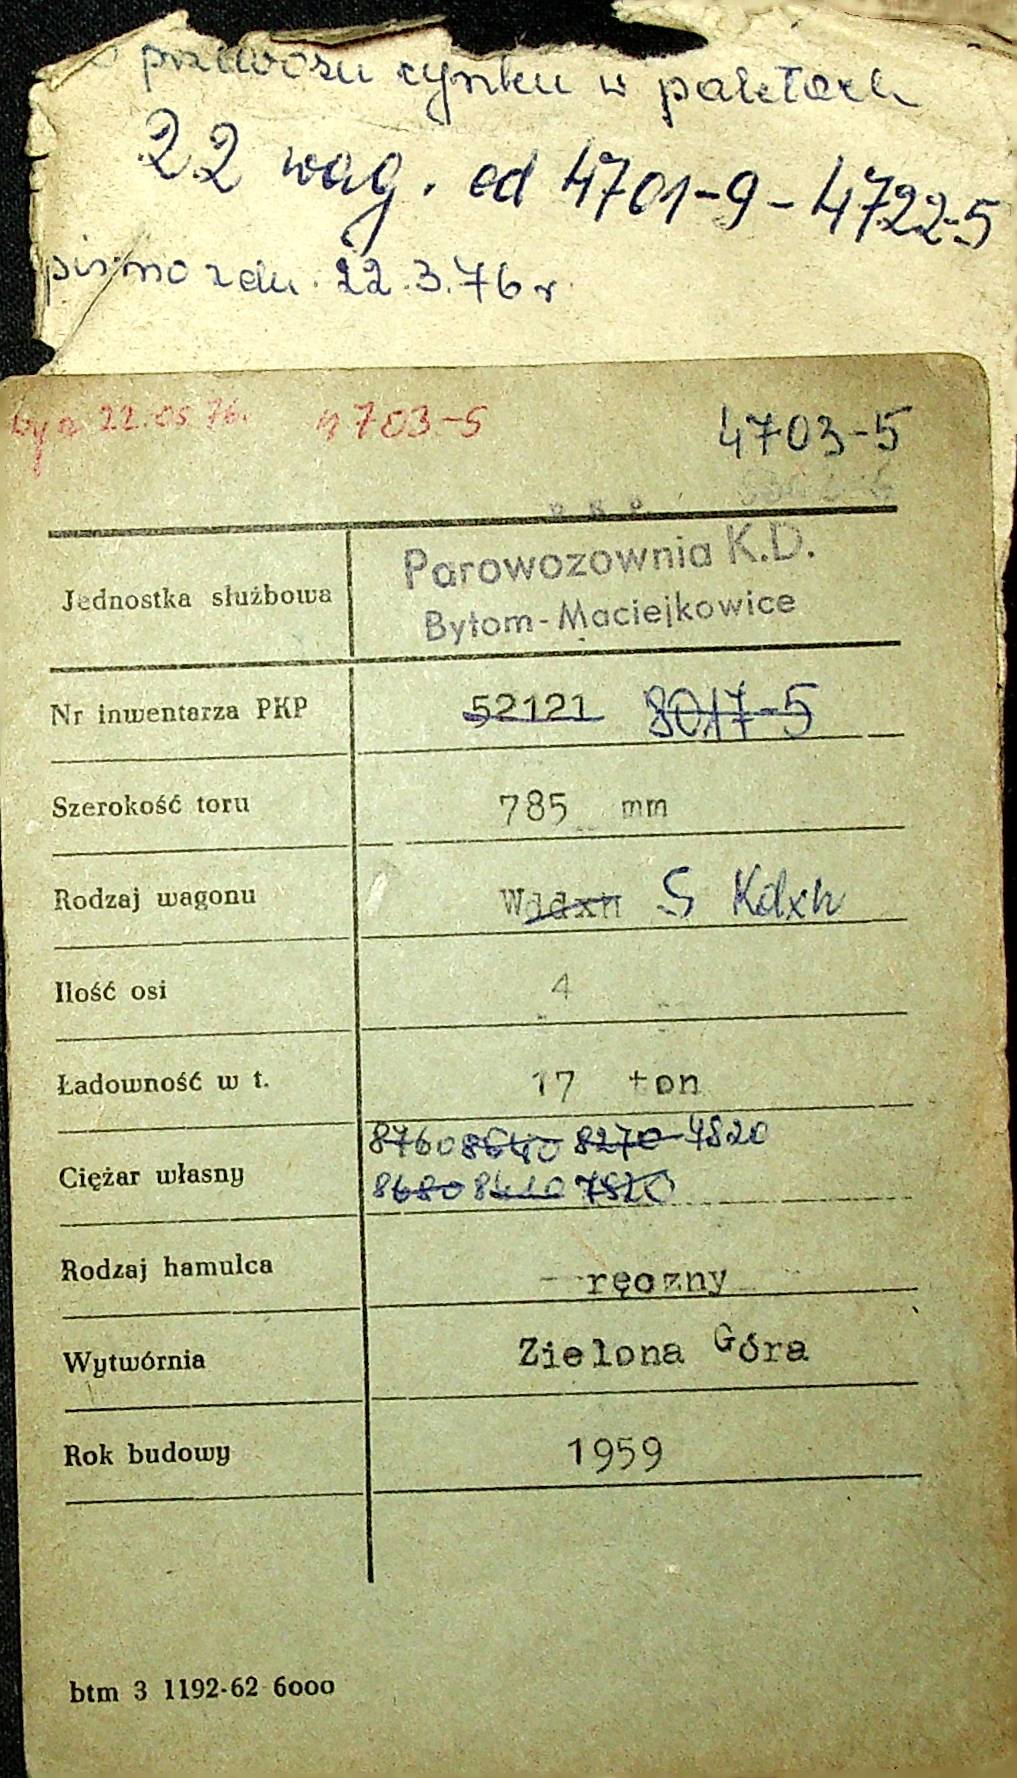 przewozu cynku w paletach
22 wag. od 4701-9 - 4722-5
pismo z dn. 22.3.76 r
22.05.76. 4703-5
4703-5
P.K.P.
Jednostka służbowa Parowozownia K.D.
Bytom-Maciejkowice
Nr inwentarza PKP 52121 8017-5
Szerokość toru 785 mm
Rodzaj wagonu Wddxh S Kdxh
Ilość osi 4
Ładowność w t. 17 ton
8760 8640 8270 7820
Ciężar własny 8680 7820
Rodzaj hamulca - ręczny
Wytwórnia Zielona Góra
Rok budowy 1959
btm 3 1192-62 6000